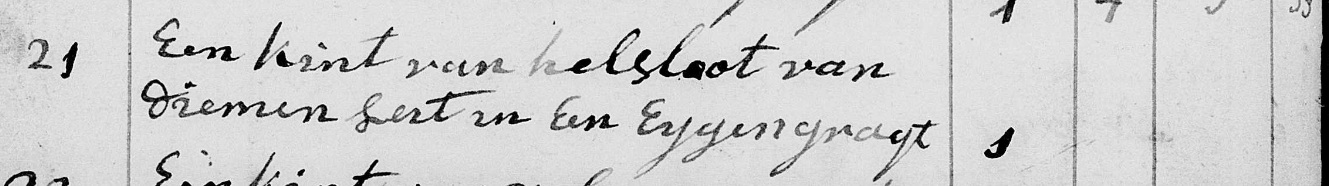 21 Een kint van helsloot van
Diemen Lest in Een Eygen gragt 1